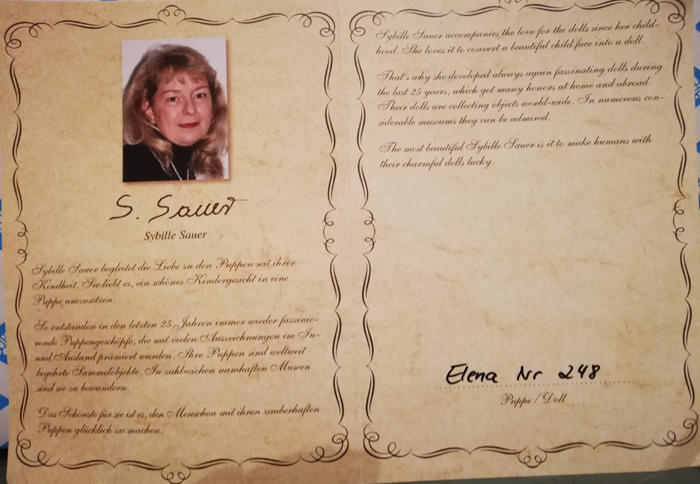 S. Sauer
Sybille Sauer
Sybille Sauer begleitet die Liebe zu den Puppen seit ihrer
Kindheit. Sie liebt es, ein schönes Kindergesicht in eine
Puppe umzusetzen.
So entstanden in den letzten 25 Jahren immer wieder faszinie-
rende Puppengeschöpfe, die mit vielen Auszeichnungen im In-
und Ausland prämiert wurden. Ihre Puppen sind weltweit
begehrte Sammelobjekte. In zahlreichen namhaften Museen
sind sie zu bewundern.
Das Schönste für sie ist es, den Menschen mit ihren zauberhaften
Puppen glücklich zu machen.
Sybille Sauer accompanies the love for the dolls since her child-
hood. She loves it to convert a beautiful child face into a doll.
That's why she developed always again faszinating dolls during
the last 25 years, which got many honors at home and abroad.
Their dolls are collecting objects world-wide. In numerous con-
siderable museums they can be admired.
The most beautiful Sybille Sauer is it to make humans with
their charmful dolls lucky.
Elena Nr 248
Puppe / Doll